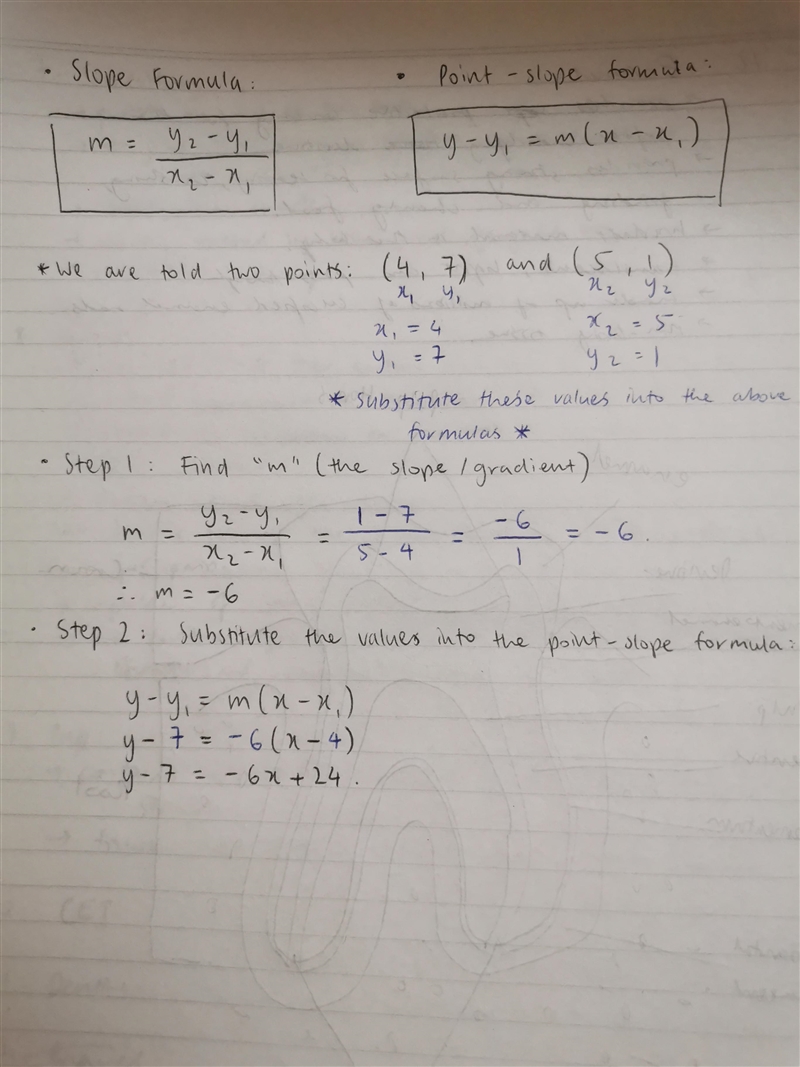 • Slope Formula:
m = y₂ - y₁ / x₂ - x₁
• Point-slope formula:
y - y₁ = m(x - x₁)
* We are told two points: (4, 7) and (5, 1)
x₁ y₁ x₂ y₂
x₁ = 4 x₂ = 5
y₁ = 7 y₂ = 1
* Substitute these values into the above
formulas *
• Step 1: Find "m" (the slope/gradient)
m = y₂ - y₁ / x₂ - x₁ = 1 - 7 / 5 - 4 = -6 / 1 = -6.
∴ m = -6
• Step 2: Substitute the values into the point-slope formula:
y - y₁ = m(x - x₁)
y - 7 = -6(x - 4)
y - 7 = -6x + 24.